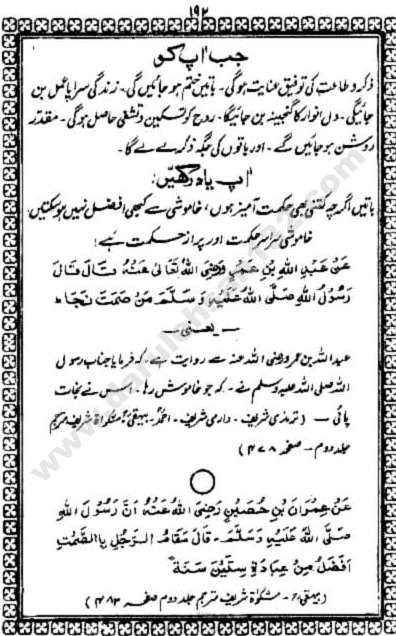 ۱۹۲
جب آپ کو
ذکر و طاعت کی توفیق عنایت ہوگی۔ باتیں ختم ہو جائیں گی۔ زندگی سراپا عمل بن
جائیگی۔ دل انوار کا گنجینہ بن جائیگا۔ روح کو تسکین و تشفی حاصل ہوگی۔ مقدر
روشن ہو جائیں گے۔ اور باتوں کی جگہ ذکر لے لے گا۔
آپ یاد رکھیں:
باتیں اگرچہ کتنی بھی حکمت آمیز ہوں، خاموشی سے کبھی افضل نہیں ہو سکتیں۔
خاموشی سراسر حکمت اور پراز حکمت ہے!
عَنْ عَبْدِ اللهِ بْنِ عَمْرٍو رَضِيَ اللهُ تَعَالٰى عَنْهُ قَالَ قَالَ
رَسُوْلُ اللهِ صَلَّى اللهُ عَلَيْهِ وَسَلَّمَ مَنْ صَمَتَ نَجَا ط
— یعنی —
عبداللہ بن عمرو رضی اللہ عنہ سے روایت ہے۔ کہ فرمایا جناب رسول
اللہ صلی اللہ علیہ وسلم نے۔ کہ جو خاموش رہا۔ اس نے نجات
پائی — (ترمذی شریف۔ دارمی شریف۔ احمد۔ بیہقی۔ مشکوٰۃ شریف مترجم
جلد دوم۔ صفحہ ۴۷۸)
عَنْ عِمْرَانَ بْنِ حُصَيْنٍ رَضِيَ اللهُ عَنْهُ اَنَّ رَسُوْلَ اللهِ
صَلَّى اللهُ عَلَيْهِ وَسَلَّمَ۔ قَالَ مَقَامُ الرَّجُلِ بِالصَّمْتِ
اَفْضَلُ مِنْ عِبَادَةِ سِتِّيْنَ سَنَةً
(بیہقی۔ مشکوٰۃ شریف مترجم جلد دوم صفحہ ۴۸۳)